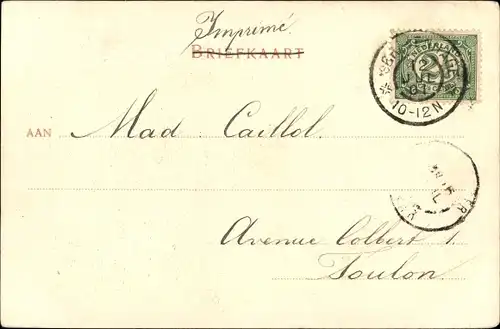 Imprimé
BRIEFKAART
AAN Mad. Caillol.
Avenue Colbert 1.
Toulon.
10-12 N